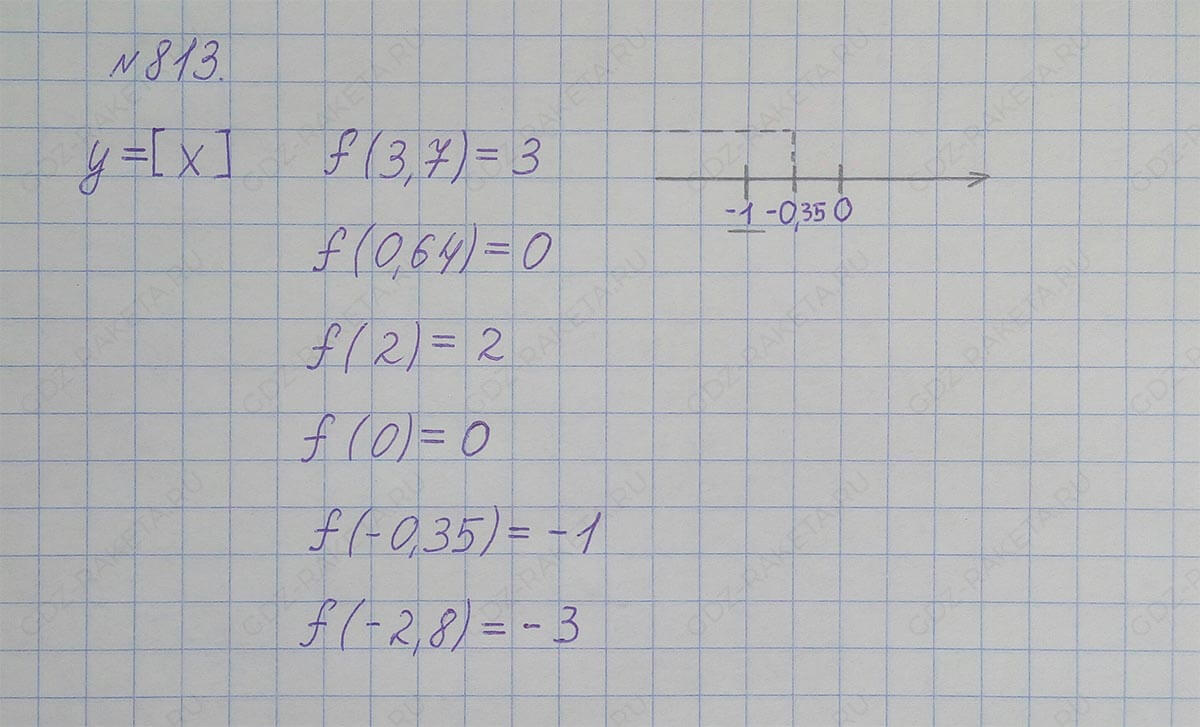 №813.
y=[x] f(3,7)=3
-1 -0,35 0
f(0,64)=0
f(2)=2
f(0)=0
f(-0,35)=-1
f(-2,8)=-3
GDZ-RAKETA.RU